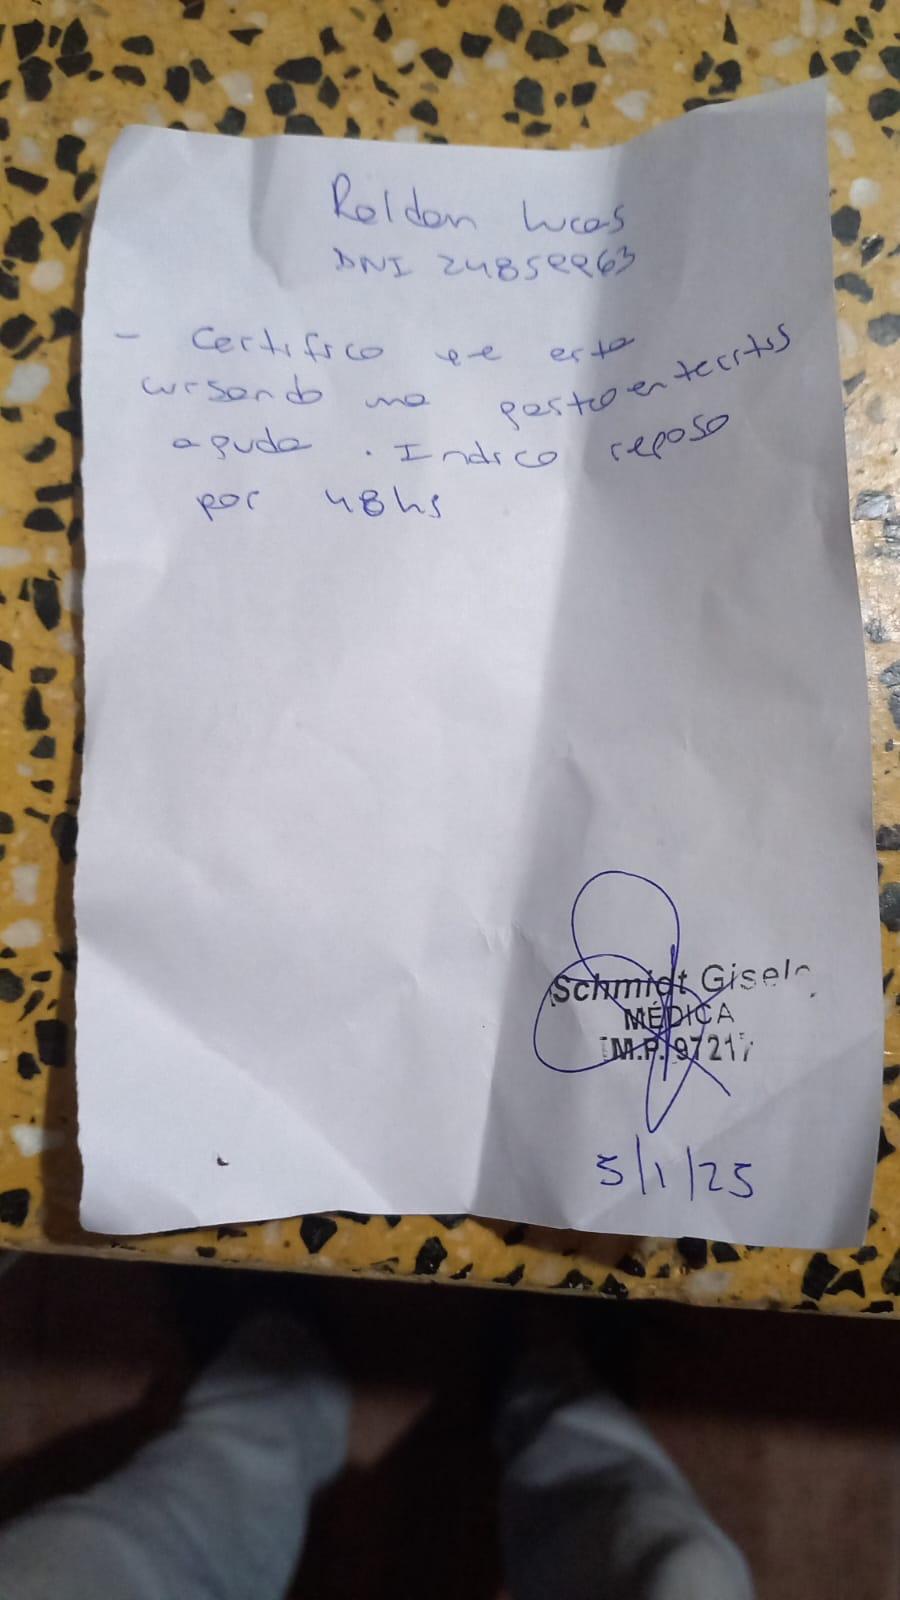 Roldan Lucas
DNI 24859963
- Certifico qe esta
cursando una gastroenteritis
aguda . Indico reposo
por 48hs
Schmidt Gisela
MÉDICA
M.P. 97217
5/1/25